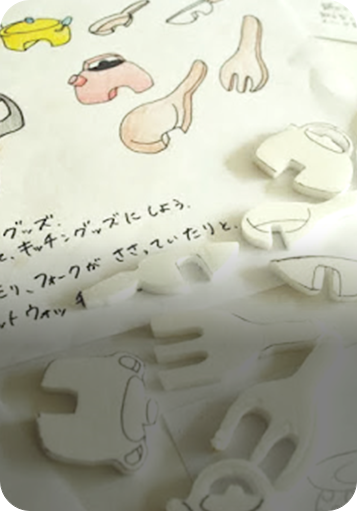 グッズ.
と、キッチングッズにしよう.
モリ、フォークが ささっていたりと.
ット ウォッチ